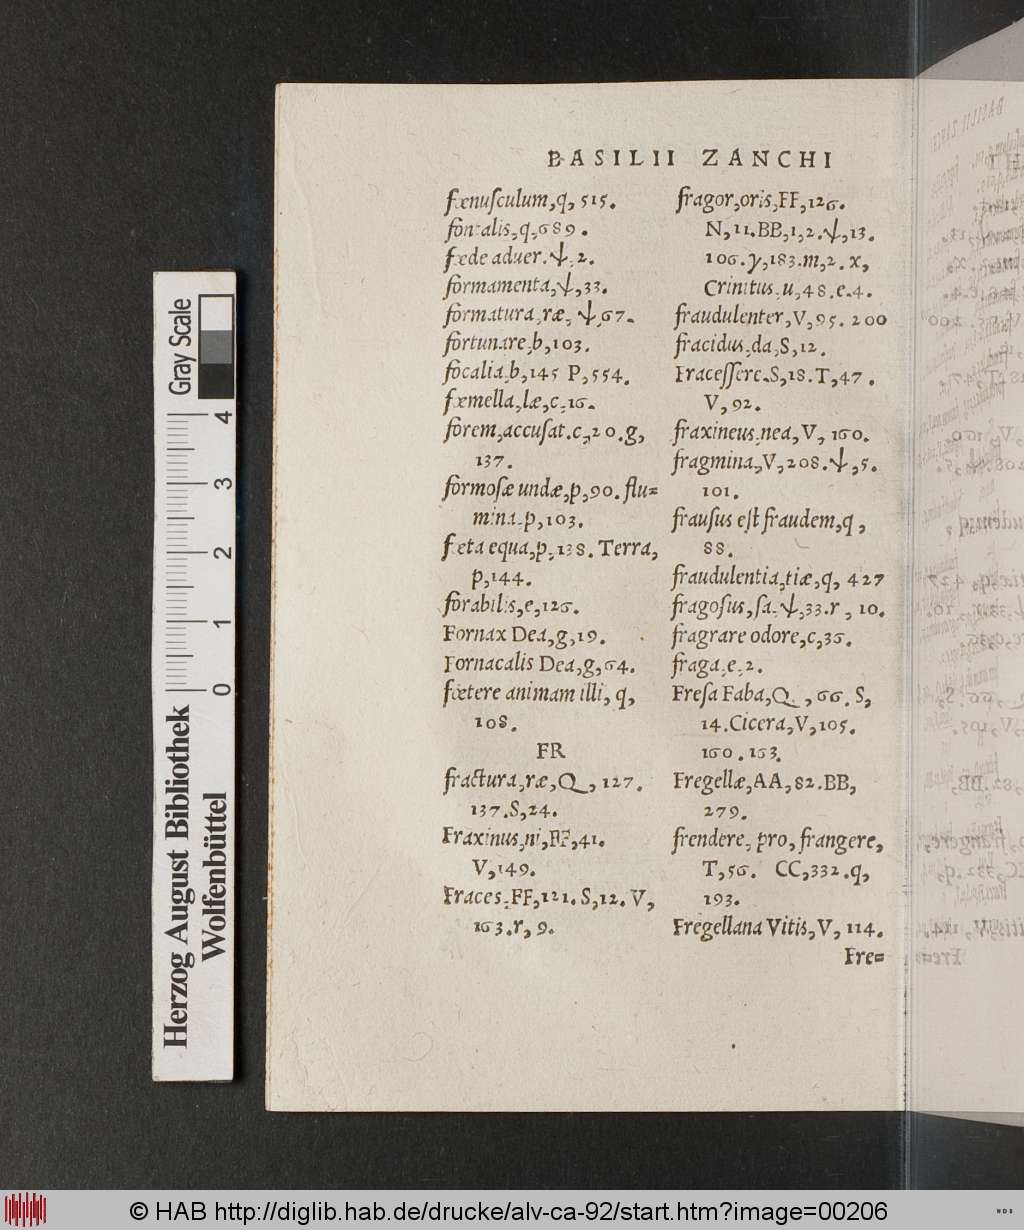 BASILII ZANCHI
fœnusculum, q, 515.
fontalis, q, 689.
fœde aduer. ψ, 2.
formamenta, ψ, 33.
formatura, ræ, ψ, 67.
fortunare, b, 103.
focalia, b, 145 P, 554.
fœmella, læ, c, 16.
forem, accusat. c, 20. g,
137.
formosæ undæ, p, 90. flu=
mina, p, 103.
fœta equa, p, 138. Terra,
p, 144.
forabilis, e, 126.
Fornax Dea, g, 19.
Fornacalis Dea, g, 64.
fœtere animam illi, q,
108.
FR
fractura, ræ, Q, 127.
137. S, 24.
Fraxinus, ni, FF, 41.
V, 149.
Fraces, FF, 121. S, 12. V,
163. r, 9.
fragor, oris, FF, 126.
N, 11. BB, 1, 2. ψ, 13.
106. y, 183. m, 2. x,
Crinitus, u, 48. e. 4.
fraudulenter, V, 95. 200
fracidus, da, S, 12.
Fracessere. S, 18. T, 47.
V, 92.
fraxineus, nea, V, 160.
fragmina, V, 208. ψ, 5.
101.
frausus est fraudem, q,
88.
fraudulentia, tiæ, q, 427
fragosus, sa, ψ, 33. r, 10.
fragrare odore, c, 36.
fraga, e, 2.
Fresa Faba, Q, 66. S,
14. Cicera, V, 105.
160. 163.
Fregellæ, AA, 82. BB,
279.
frendere, pro, frangere,
T, 56. CC, 332. q,
193.
Fregellana Vitis, V, 114.
Fre=
Herzog August Bibliothek
Wolfenbüttel
0 1 2 3 4
Gray Scale
© HAB http://diglib.hab.de/drucke/alv-ca-92/start.htm?image=00206